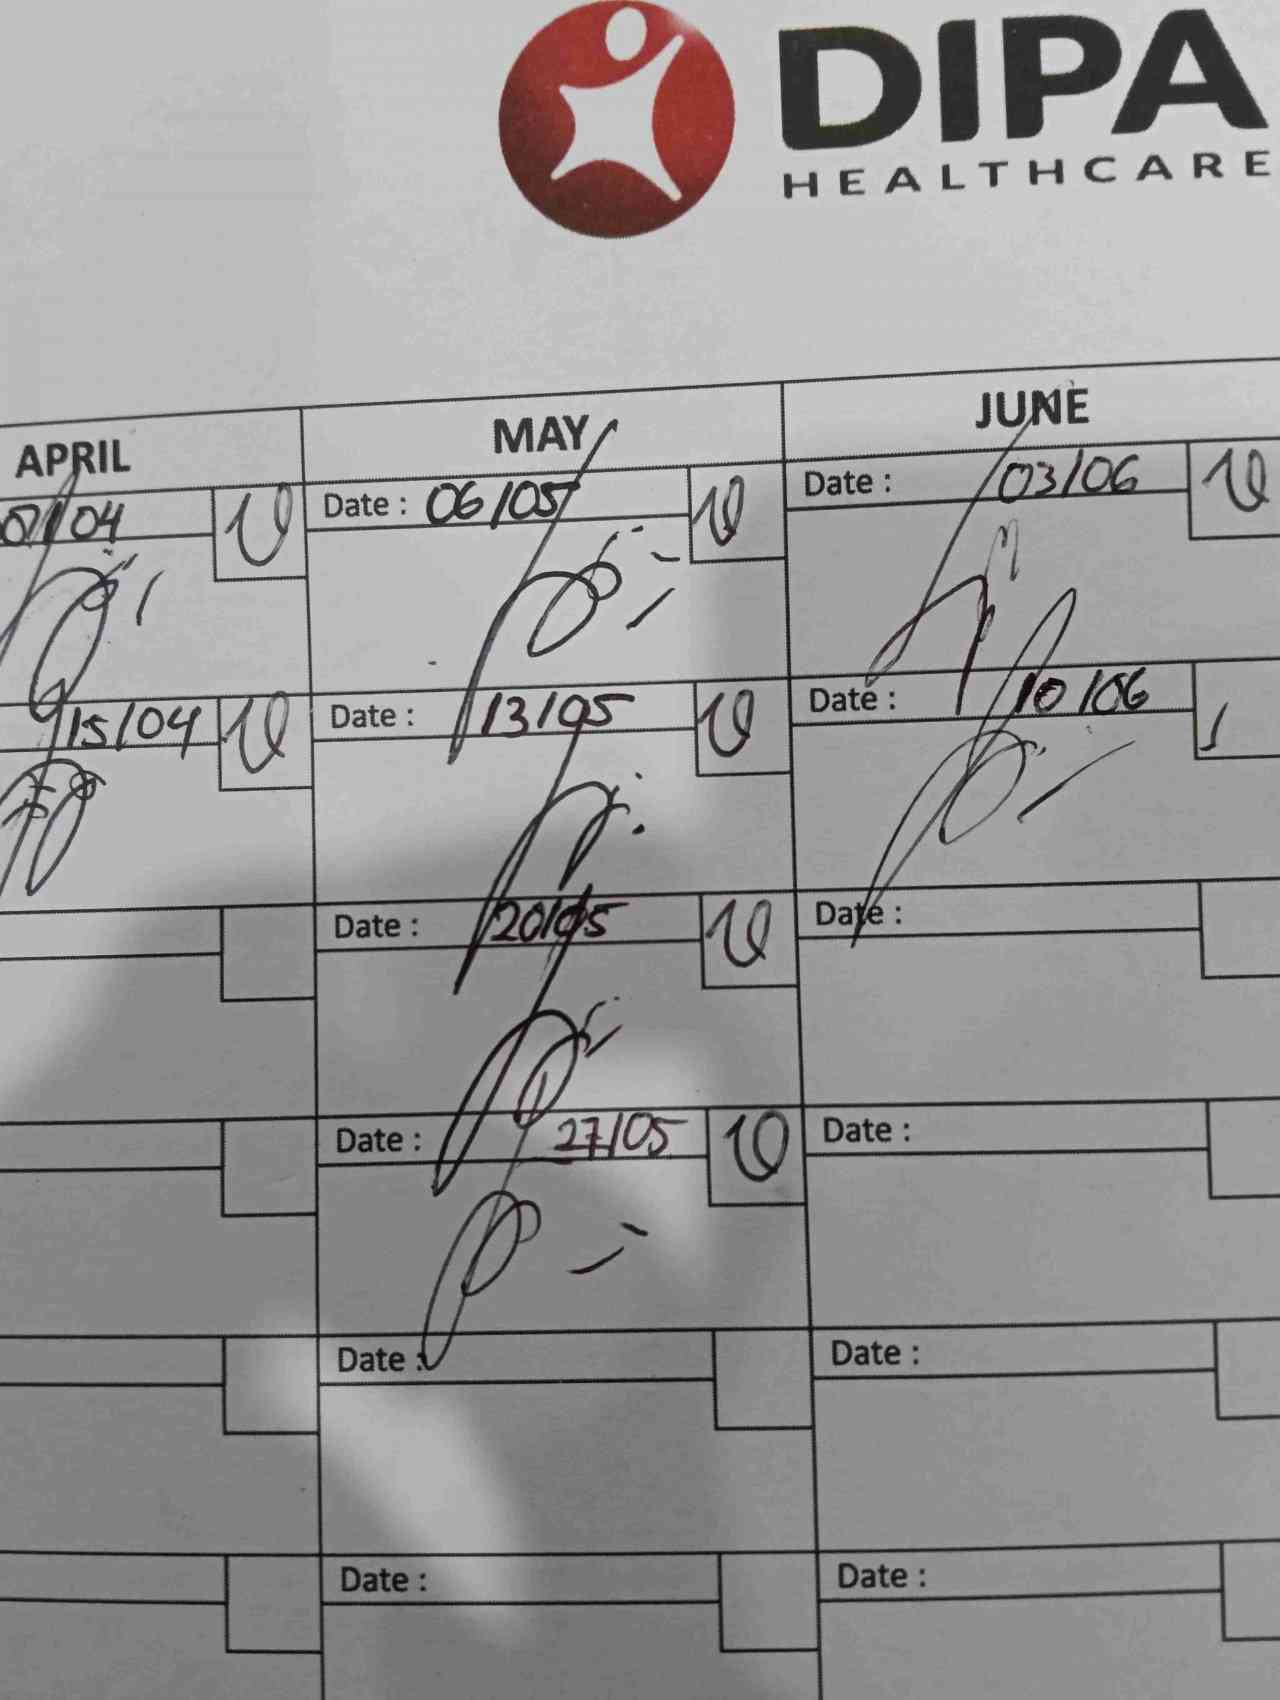 DIPA
HEALTHCARE
APRIL MAY JUNE
/04 Date : 06/05 Date : 03/06
15/04 Date : 13/05 Date : 10/06
Date : 20/05 Date :
Date : 27/05 Date :
Date : Date :
Date : Date :